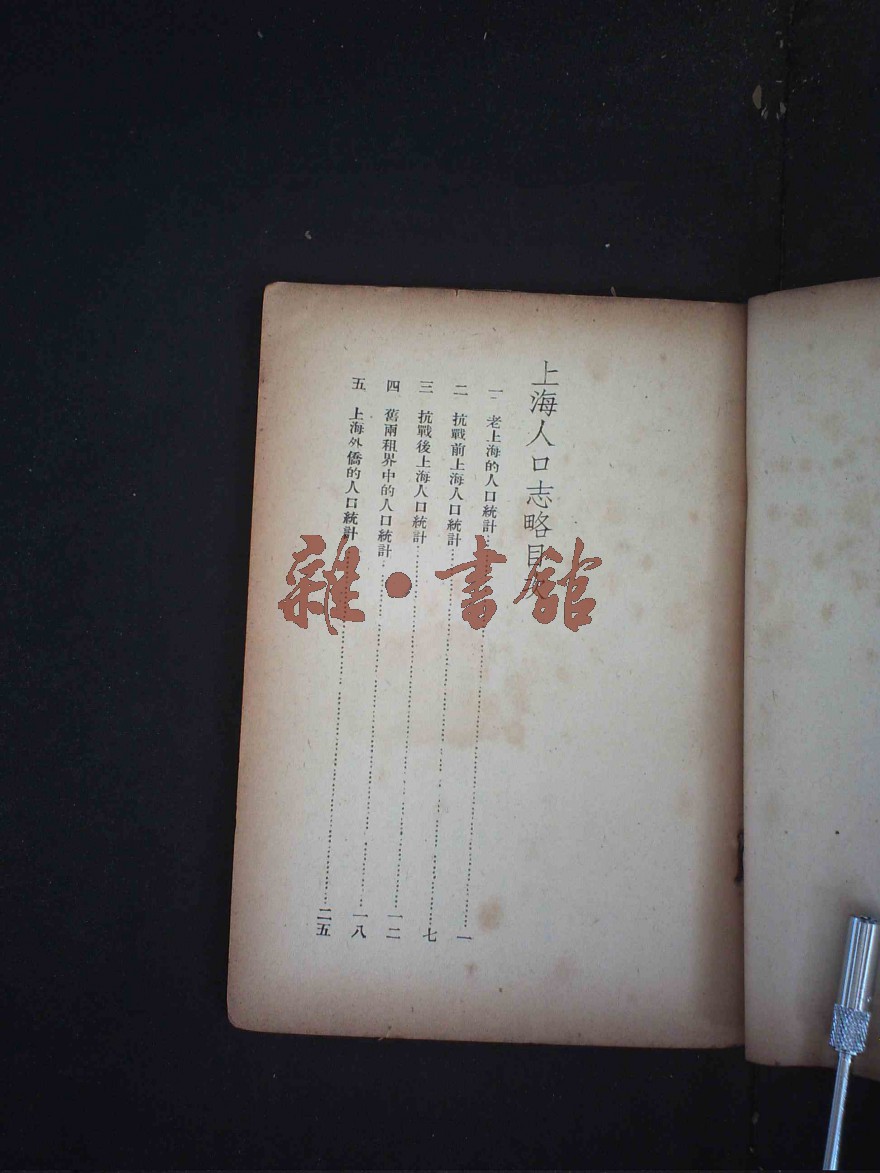 上海人口志略目次
一 老上海的人口統計 一
二 抗戰前上海人口統計 七
三 抗戰後上海人口統計 一二
四 舊兩租界中的人口統計 一八
五 上海外僑的人口統計 二五
雜·書館